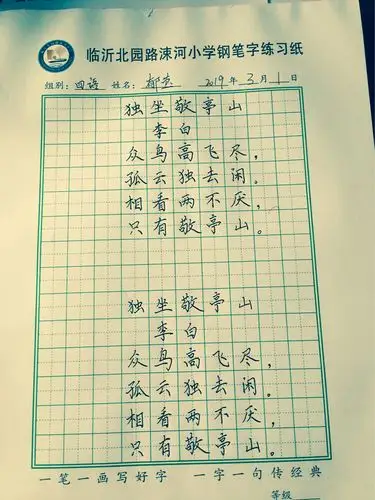 临沂北园路涑河小学钢笔字练习纸
组别：四语 姓名： 2019年3月1日
独坐敬亭山
李白
众鸟高飞尽，
孤云独去闲。
相看两不厌，
只有敬亭山。
独坐敬亭山
李白
众鸟高飞尽，
孤云独去闲。
相看两不厌，
只有敬亭山。
一笔一画写好字 一字一句传经典
等级